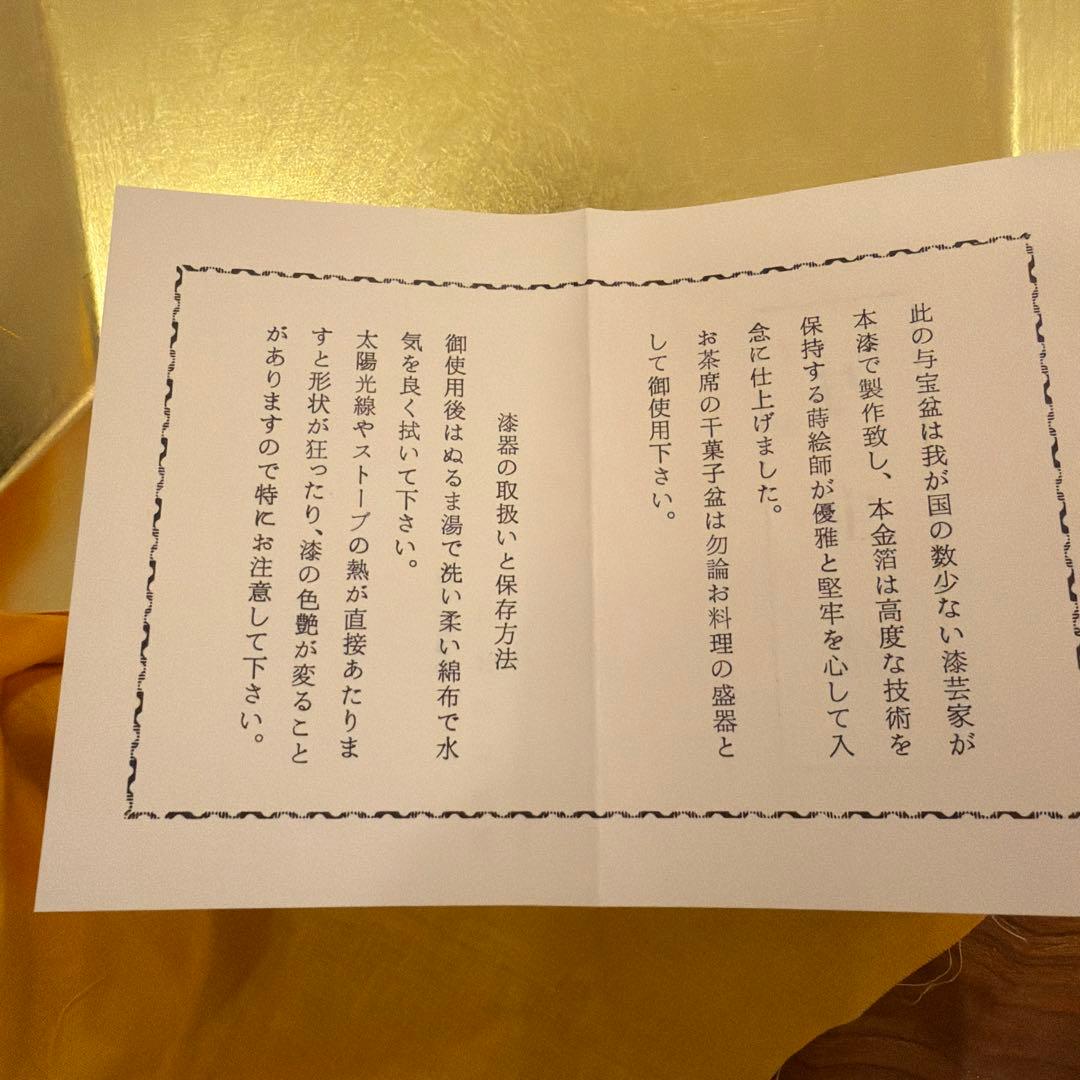 此の与宝盆は我が国の数少ない漆芸家が
本漆で製作致し、本金箔は高度な技術を
保持する蒔絵師が優雅と堅牢を心して入
念に仕上げました。
お茶席の干菓子盆は勿論お料理の盛器と
して御使用下さい。
漆器の取扱いと保存方法
御使用後はぬるま湯で洗い柔い綿布で水
気を良く拭いて下さい。
太陽光線やストーブの熱が直接あたりま
すと形状が狂ったり、漆の色艶が変ること
がありますので特にお注意して下さい。